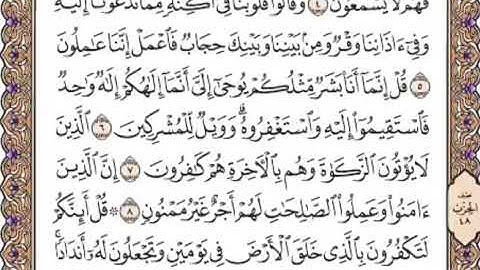 فَهُمْ لَا يَسْمَعُونَ ٤ وَقَالُوا۟ قُلُوبُنَا فِىٓ أَكِنَّةٍ مِّمَّا تَدْعُونَآ إِلَيْهِ
وَفِىٓ ءَاذَانِنَا وَقْرٌ وَمِنۢ بَيْنِنَا وَبَيْنِكَ حِجَابٌ فَٱعْمَلْ إِنَّنَا عَٰمِلُونَ
٥ قُلْ إِنَّمَآ أَنَا۠ بَشَرٌ مِّثْلُكُمْ يُوحَىٰٓ إِلَىَّ أَنَّمَآ إِلَٰهُكُمْ إِلَٰهٌ وَٰحِدٌ
فَٱسْتَقِيمُوٓا۟ إِلَيْهِ وَٱسْتَغْفِرُوهُ ۗ وَوَيْلٌ لِّلْمُشْرِكِينَ ٦ ٱلَّذِينَ
لَا يُؤْتُونَ ٱلزَّكَوٰةَ وَهُم بِٱلْءَاخِرَةِ هُمْ كَٰفِرُونَ ٧ إِنَّ ٱلَّذِينَ
ءَامَنُوا۟ وَعَمِلُوا۟ ٱلصَّٰلِحَٰتِ لَهُمْ أَجْرٌ غَيْرُ مَمْنُونٍ ٨ ۞ قُلْ أَئِنَّكُمْ
لَتَكْفُرُونَ بِٱلَّذِى خَلَقَ ٱلْأَرْضَ فِى يَوْمَيْنِ وَتَجْعَلُونَ لَهُۥٓ أَندَادًا ۚ
الحزب
٤٨